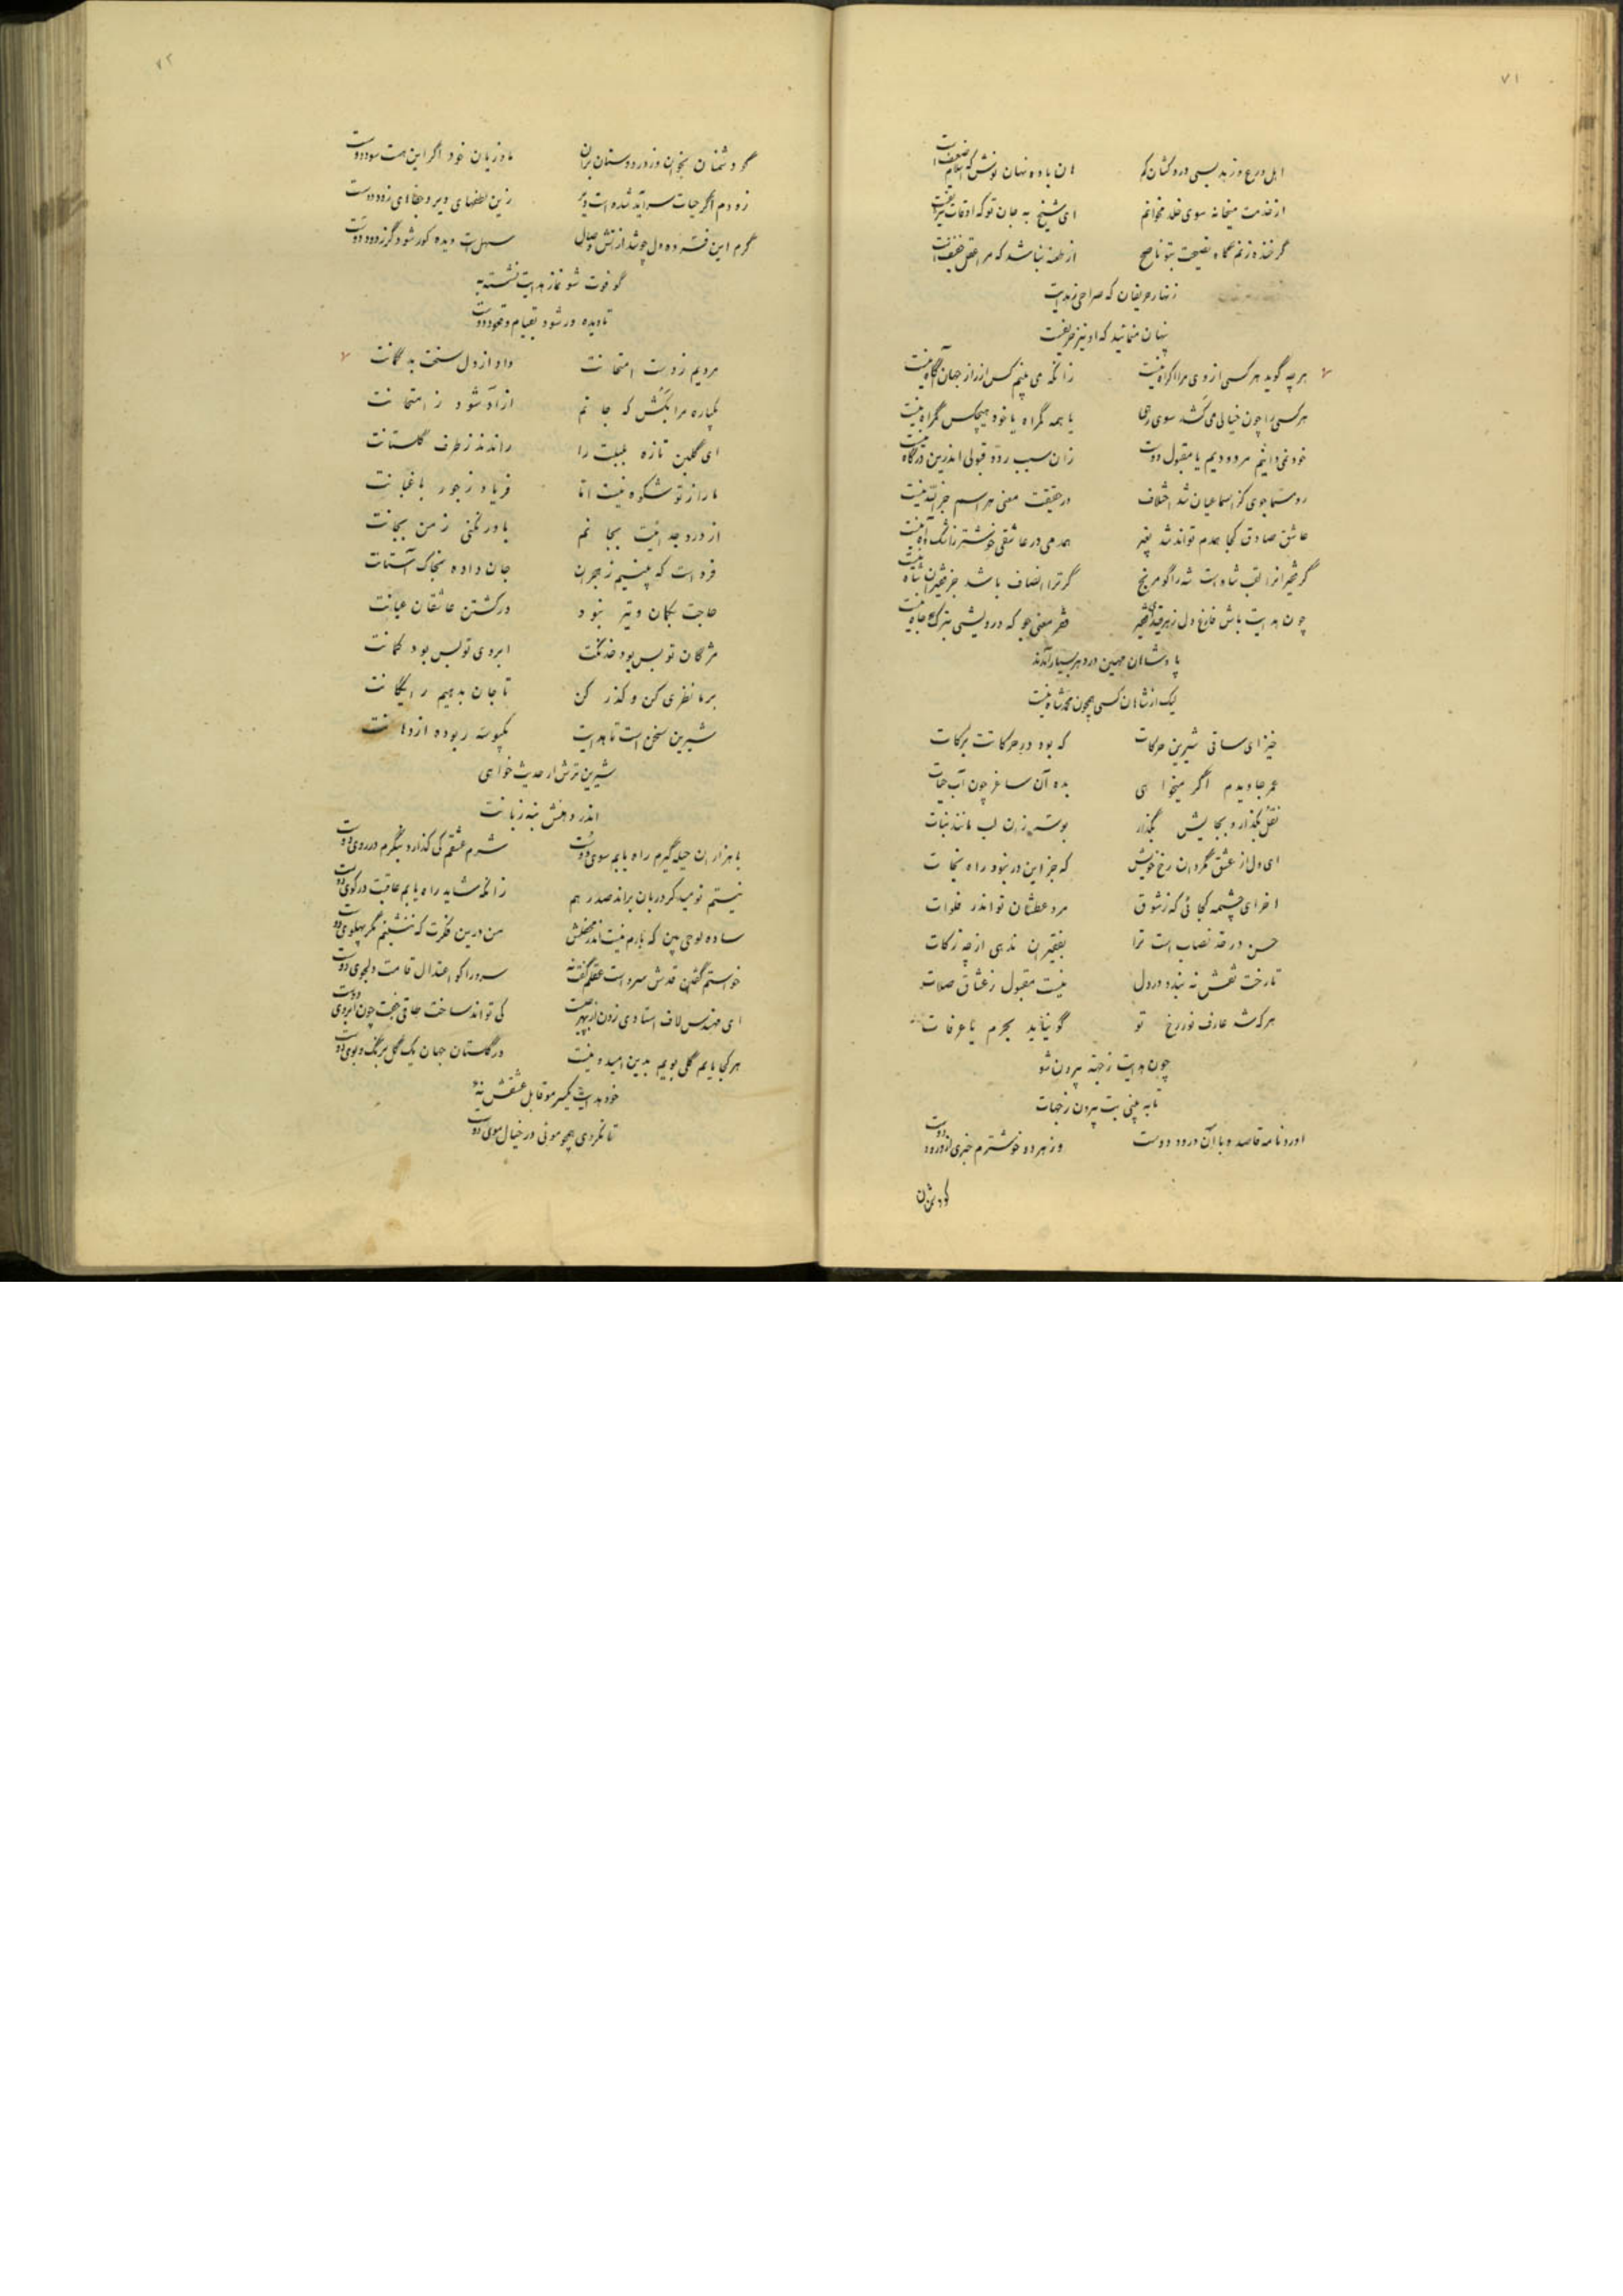 ۷۱
اهل ورع و زهد بسی درد کشان کم
هان باده نهان نوش که اسلام ضعیف است
از خدمت میخانه سوی خلد مخوانم
ای شیخ به جان تو که اوقات شریف است
گر خنده زنم گاه نصیحت بتو ناصح
از طعنه نباشد که مرا عقل خفیف است
زنهار حریفان که صراحی ز هدایت
پنهان منمائید که او نیز حریف است
هر چه گوید هر کسی از وی مرا اکراه نیست
زانکه می بینم کس از راز جهان آگاه نیست
هر کسی را چون خیالی می کشد سوی رهی
یا همه گمراه یا خود هیچکس گمراه نیست
خود نمی دانیم مردودیم یا مقبول دوست
زان سبب رد و قبولی اندرین درگاه نیست
رو مسما جوی کز اسما عیان شد اختلاف
در حقیقت معنی هر اسم جز الله نیست
عاشق صادق کجا همدم تواند شد بغیر
همدمی در عاشقی خوشتر ز اشک و آه نیست
گر فقیرانرا لقب شاه است شه را گو مرنج
گر ترا انصاف باشد جز فقیران شاه نیست
چون هدایت باش فارغ دل ز هر قید ای فقیر
فقر معنی جو که درویشی بترک جاه نیست
پادشاهان مهین در دهر بسیار آمدند
لیک از شاهان کسی همچون محمد شاه نیست
خیز ای ساقی شیرین حرکات
که بود در حرکاتت برکات
عمر جاویدم اگر میخواهی
بده آن ساغر چون آب حیات
نقل بگذار و بجایش بگذار
بوسه زان لب مانند نبات
ای دل از عشق مگردان رخ خویش
که جز این در نبود راه نجات
آخر ای چشمه کجائی که ز شوق
مرد عطشان تو اندر فلوات
حسن در حد نصاب است ترا
بفقیران ندهی از چه زکات
تا رخت نقش نه بندد در دل
نیست مقبول ز عشاق صلات
هر که شد عارف نور رخ تو
گو نیاید بحرم یا عرفات
چون هدایت ز جهة بیرون شو
تا به بینی بت بیرون ز جهات
آورد نامه قاصد و با آن درود دوست
وز هر دو خوشترم خبری از ورود دوست
گو دشمنان
۷۲
گو دشمنان بخوان وز در دوستان بران
ما و زیان خود اگر این هست سود دوست
زودم اگر حیات سرآید شده است دیر
زین لطفهای دیر و جفاهای زود دوست
گرم این فسرده دل چو شد از آتش وصال
سهل است دیده کور شود گر ز دود دوست
گو فوت شو نماز هدایت نشسته به
تا دیده ور شود بقیام و قعود دوست
مردیم ز دست امتحانت
داد از دل سخت بد گمانت
یکباره مرا بکش که جانم
آزاد شود ز امتحانت
ای گلبن تازه بلبلت را
راندند ز طرف گلستانت
ما را ز تو شکوه نیست اما
فریاد ز جور باغبانت
از درد جدائیت بجانم
باور نکنی ز من بجانت
فرداست که بینیم ز هجران
جان داده بخاک آستانت
حاجت بکمان و تیر نبود
در کشتن عاشقان عیانت
مژگان تو بس بود خدنگت
ابروی تو بس بود کمانت
بر ما نظری کن و گذر کن
تا جان بدهیم رایگانت
شیرین سخن است تا هدایت
یکبوسه ربوده از دهانت
شیرین ترش ار حدیث خواهی
اندر دهنش بنه زبانت
با هزاران حیله گیرم راه یابم سوی دوست
شرم عشقم کی گذارد بنگرم در روی دوست
نیستم نومید گر دربان براند صد رهم
زانکه شاید راه یابم عاقبت در کوی دوست
ساده لوحی بین که بارم نیست اندر محفلش
من درین فکرت که ننشینم مگر پهلوی دوست
خواستم گفتن قدش سرو است عقلم گفت نه
سرو را کو اعتدال قامت دلجوی دوست
ای مهندس لاف استادی زدن از بهر چیست
کی تواند ساخت طاقی جفت چون ابروی دوست
هر کجا یابم گلی بویم بدین امید و نیست
در گلستان جهان یک گل برنگ و بوی دوست
خود هدایت یکسر مو قابل عشقش نه
تا نگردی همچو موئی در خیال موی دوست